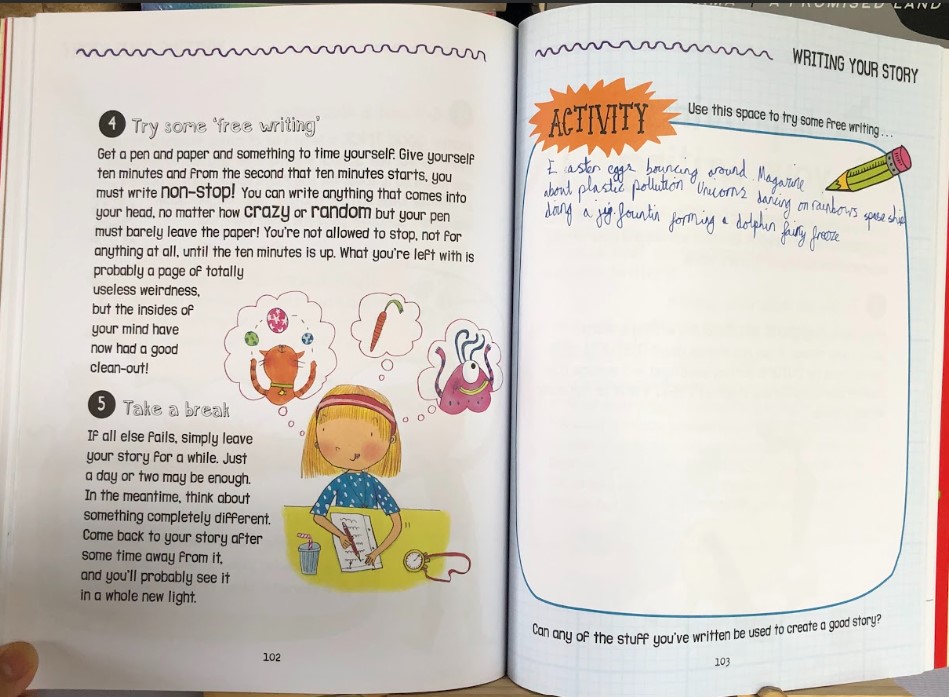 A PROMISED LAND
4 Try some 'free writing'
Get a pen and paper and something to time yourself. Give yourself
ten minutes and from the second that ten minutes starts, you
must write non-stop! You can write anything that comes into
your head, no matter how crazy or random but your pen
must barely leave the paper! You're not allowed to stop, not for
anything at all, until the ten minutes is up. What you're left with is
probably a page of totally
useless weirdness,
but the insides of
your mind have
now had a good
clean-out!
5 Take a break
If all else fails, simply leave
your story for a while. Just
a day or two may be enough.
In the meantime, think about
something completely different.
Come back to your story after
some time away from it,
and you'll probably see it
in a whole new light.
102
WRITING YOUR STORY
ACTIVITY
Use this space to try some free writing . . .
Easter eggs bouncing around. Magazine
about plastic pollution Unicorns dancing on rainbows spase ship
doing a jig. fountin forming a dolphin fairy freeze
Can any of the stuff you've written be used to create a good story?
103